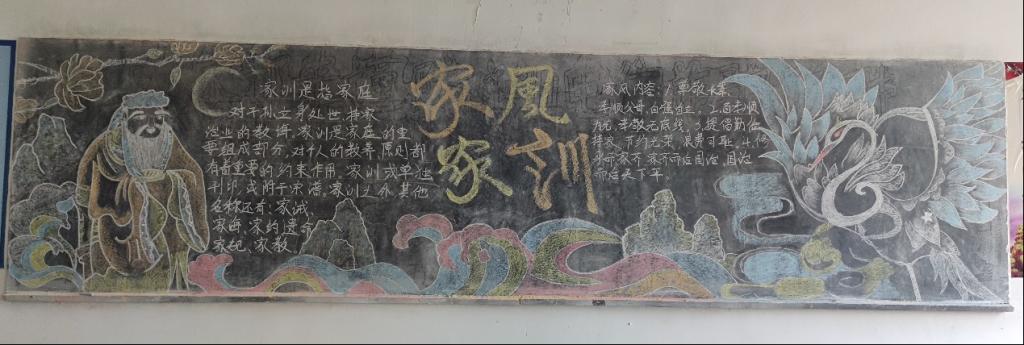 家訓是指家庭
对子孙立身处世持家
治业的教诲,家训是家庭的重
要组成部分,对个人的教养,原则都
有着重要的约束作用,家训或单独
刊印,或附于宗谱,家训之外,其他
名称还有:家诫,
家诲、家约、遗命
家规、家教
家風
家訓
家风内容:1.尊敬长辈
孝顺父母,自强自立,2.上面老顺
3,提倡勤俭
持家,节约光荣,浪费可耻,4,修
身而家齐,家齐而后国治,国治
而后天下平。